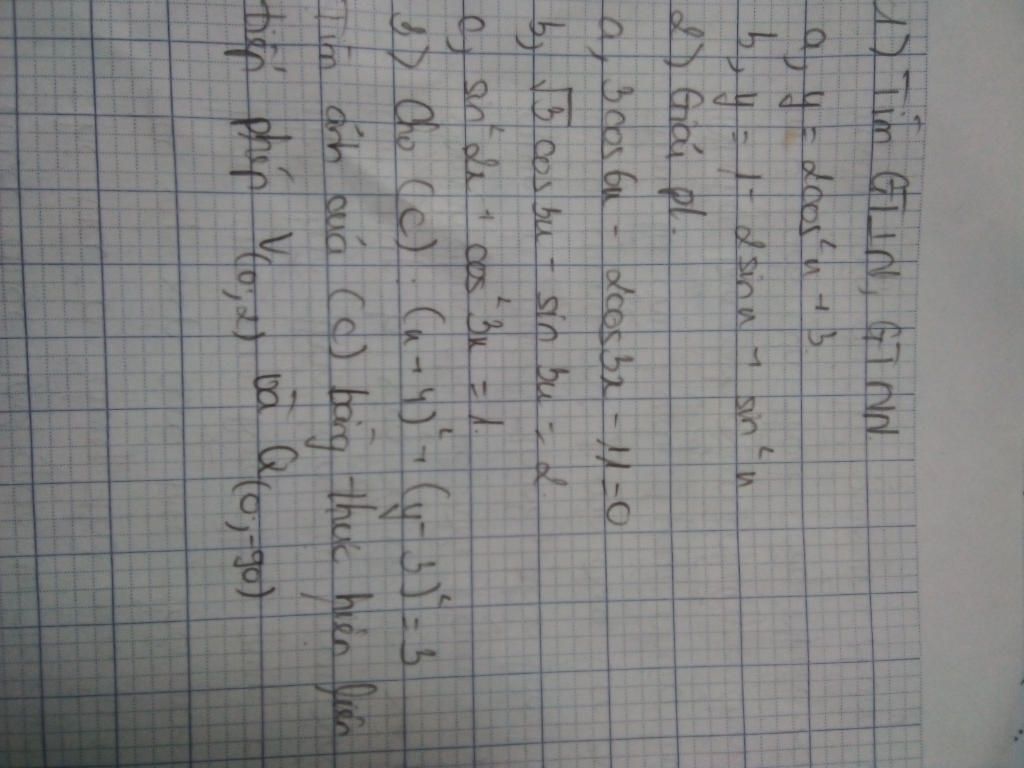 1) Tìm GTLN, GTNN
a, y = 2cos²x + 3
b, y = 1 - 2sinx + sin²x
2) Giải pt.
a, 3cos6x - 2cos3x - 11 = 0
b, √3 cos3x - sin3x = 2
c, sin²2x + cos²3x = 1.
3) Cho (C). (x + 4)² + (y - 3)² = 3
Tìm ảnh của (C) bằng thực hiện liên
tiếp phép V(0,2) và Q(0,-90)